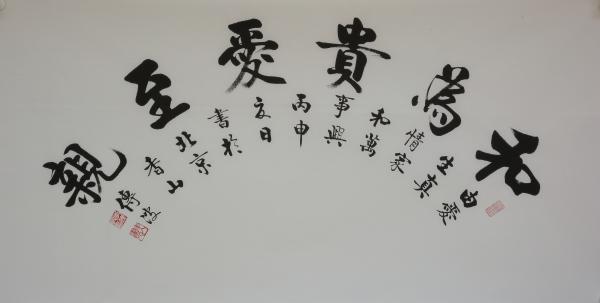 和為貴愛至親
由愛
生真
情家
和萬
事興
丙申
夏日
書於
北京
香山
傅